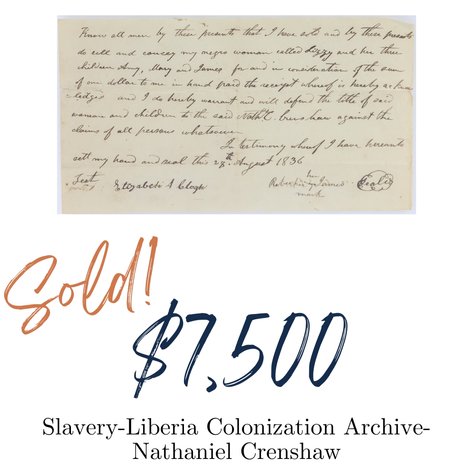 Know all men by these presents that I have sold and by these presents
do sell and convey my negro woman called Lizzy and her three
children Amy, Mary and James for and in consideration of the sum
of one dollar to me in hand paid the receipt whereof is hereby acknow
ledged and I do hereby warrant and will defend the title of said
woman and children to the said Nathl. Crenshaw against the
claims of all persons whatsoever
In testimony whereof I have hereunto
sett my hand and seal this 28th August 1836
Test
Elizabeth A Clogh
her
mark
Seal
Sold!
$7,500
Slavery-Liberia Colonization Archive-
Nathaniel Crenshaw